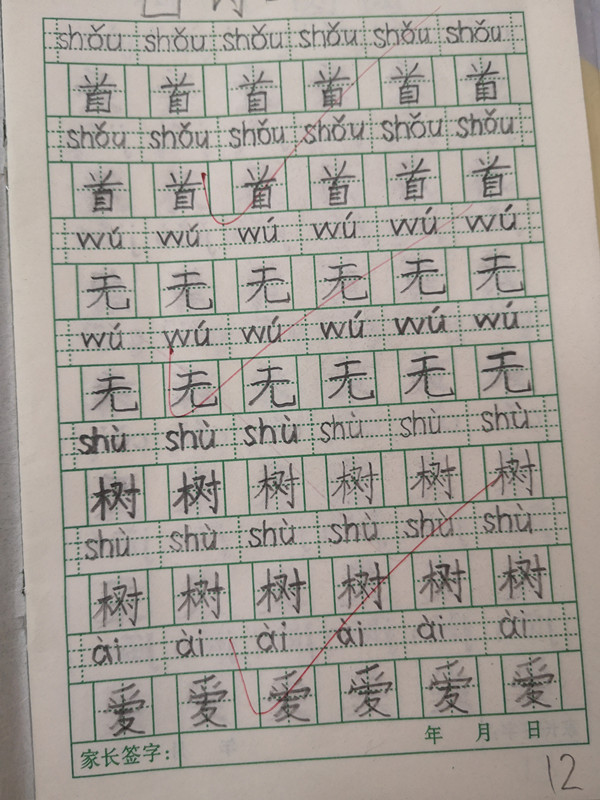 shǒu shǒu shǒu shǒu shǒu shǒu
首 首 首 首 首 首
shǒu shǒu shǒu shǒu shǒu shǒu
首 首 首 首 首 首
wú wú wú wú wú wú
无 无 无 无 无 无
wú wú wú wú wú wú
无 无 无 无 无 无
shù shù shù shù shù shù
树 树 树 树 树 树
shù shù shù shù shù shù
树 树 树 树 树 树
ài ài ài ài ài ài
爱 爱 爱 爱 爱 爱
家长签字: 年 月 日
12